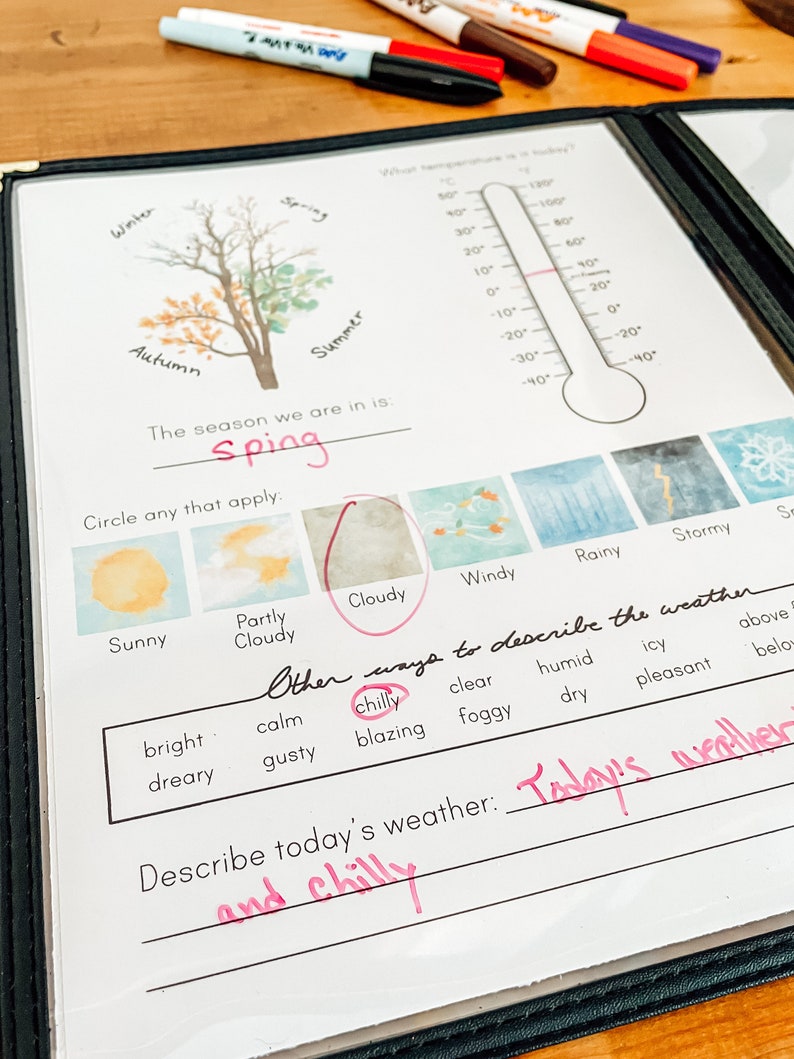 What temperature is it today?
°C °F
50° 120°
40° 100°
30° 80°
20° 60°
10° 40°
0° 20°
-10° 0°
-20° -20°
-30° -40°
-40°
Winter Spring
Autumn Summer
The season we are in is:
Sping
Circle any that apply:
Sunny Partly Cloudy Cloudy Windy Rainy Stormy
Other ways to describe the weather
bright calm chilly clear humid icy above
dreary gusty blazing foggy dry pleasant
Describe today's weather: Today's weather
and chilly